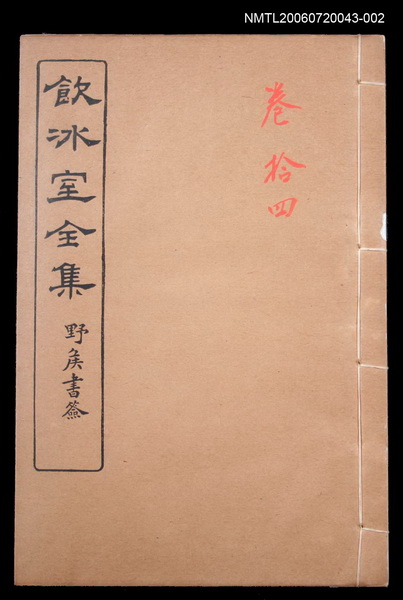 NMTL20060720043-002
飲冰室全集
野侯書簽
卷拾四